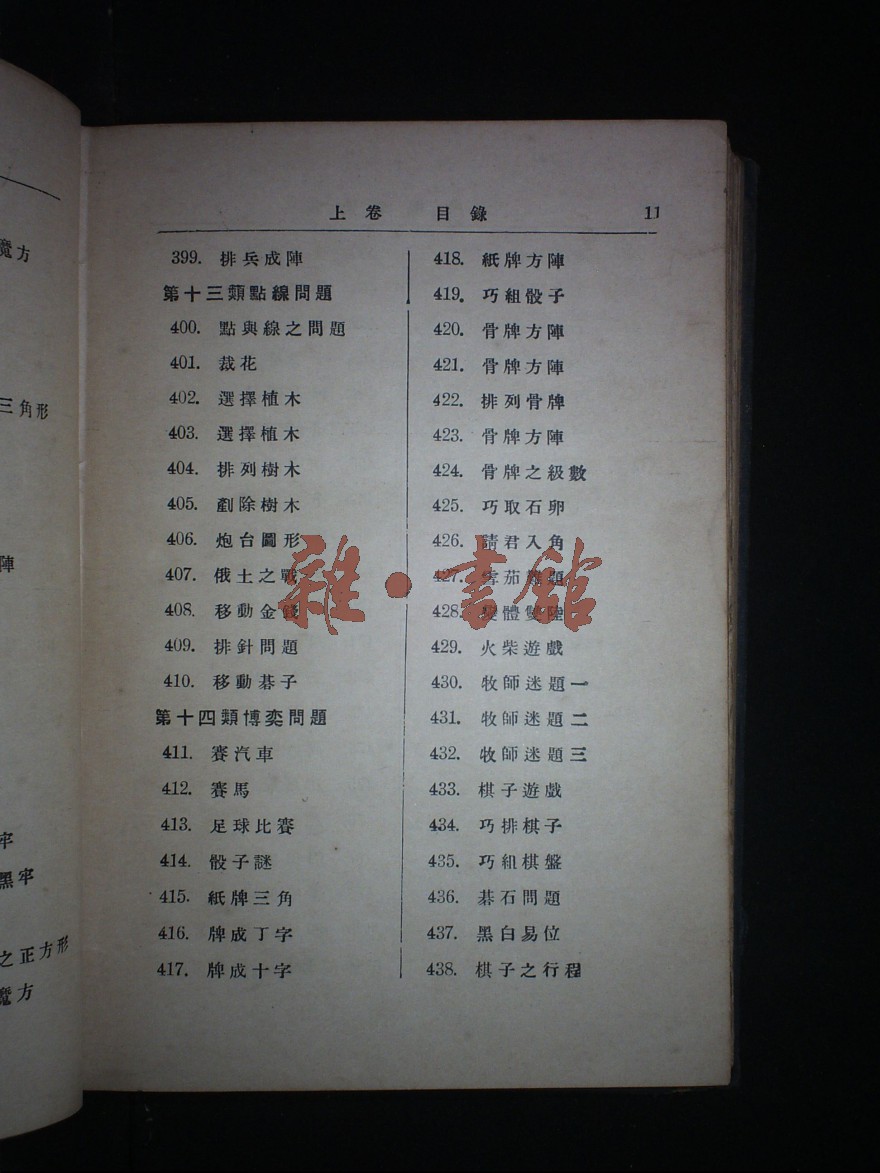 上卷 目錄 11
399. 排兵成陣
第十三類點線問題
400. 點與線之問題
401. 裁花
402. 選擇植木
403. 選擇植木
404. 排列樹木
405. 剷除樹木
406. 炮台圖形
407. 俄土之戰
408. 移動金錢
409. 排針問題
410. 移動碁子
第十四類博奕問題
411. 賽汽車
412. 賽馬
413. 足球比賽
414. 骰子謎
415. 紙牌三角
416. 牌成丁字
417. 牌成十字
418. 紙牌方陣
419. 巧組骰子
420. 骨牌方陣
421. 骨牌方陣
422. 排列骨牌
423. 骨牌方陣
424. 骨牌之級數
425. 巧取石卵
426. 請君入角
427. 雪茄難題
428. 變體雙陸
429. 火柴遊戲
430. 牧師迷題一
431. 牧師迷題二
432. 牧師迷題三
433. 棋子遊戲
434. 巧排棋子
435. 巧組棋盤
436. 碁石問題
437. 黑白易位
438. 棋子之行程
雜·書館
魔方
三角形
陣
牢
黑牢
之正方形
魔方